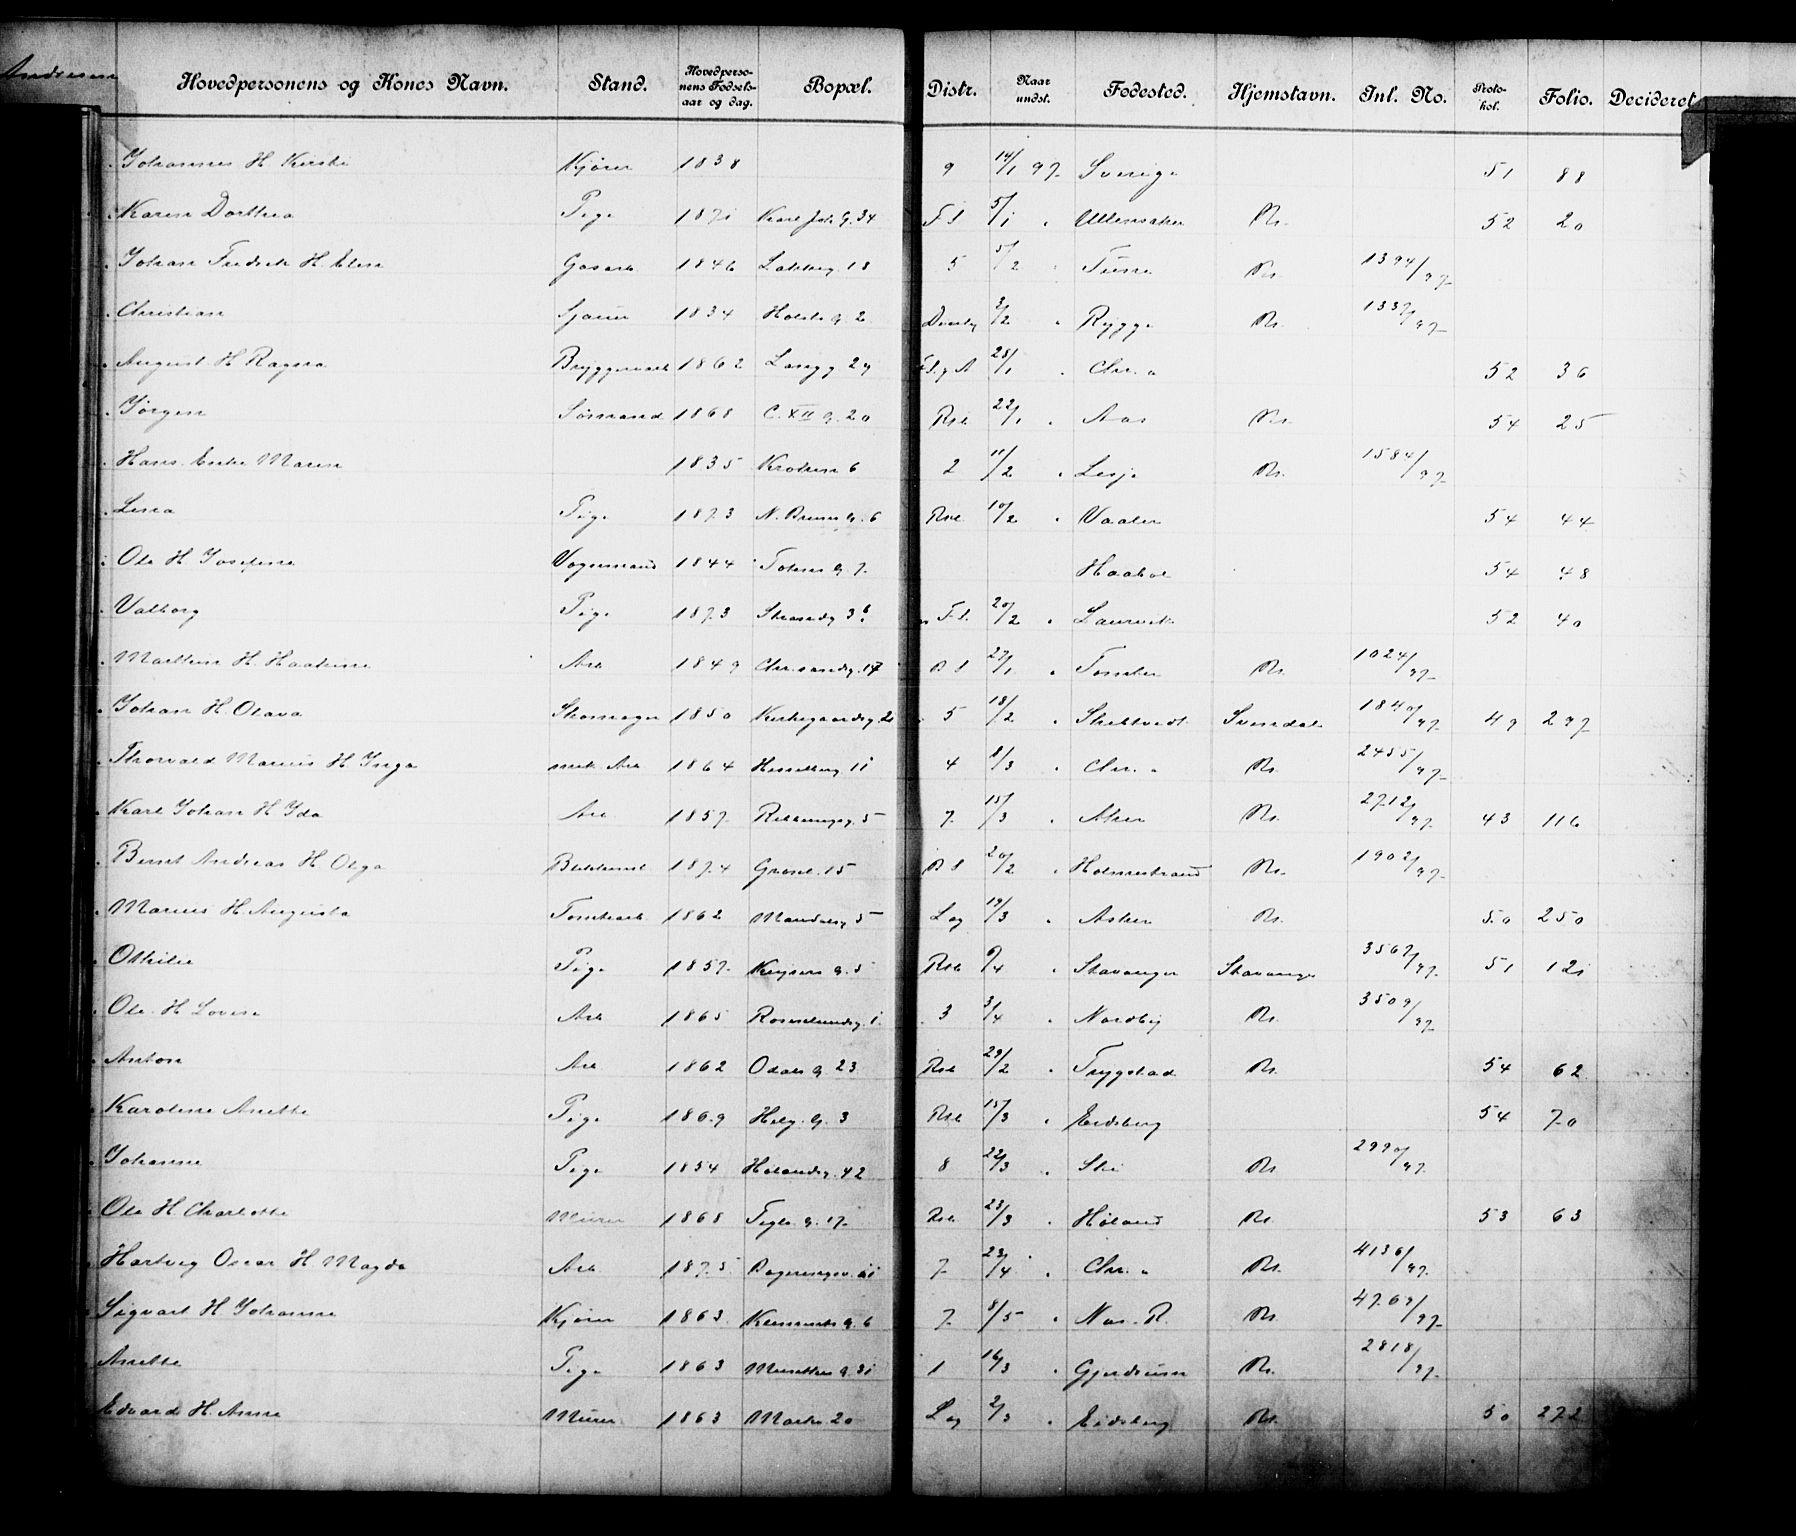 Andresen
Hovedpersonens og Kones Navn. Stand. Hovedperso-nens Fødsels-aar og dag. Bopæl. Distr. Naar undst. Fødested. Hjemstavn. Inl. No. Proto-kol. Folio. Decideret
Johannes H. Kjører 1838 9 14/1 97. Sverige 51 88
Karen Dorthea Pige 1871 Karl Joh. G. 34 F.s. 5/1 " Ullensaker Kr. 52 20
Johan Fredrik H. Elise Gasarb 1846 Lakkeg. 18 5 5/2 " Tune Kr. 1394/97.
Christian Sjouer 1834 Holst. G. 2 3/2 " Rygge Kr. 1337/97.
August H. Ragna Bryggeriarb 1862 Langg. 29 28/1 " Chr. a 52 36
Jørgen Sømand 1868 C. XII G. 20 Rst. 22/1 " Aas Kr. 54 25
Hans Enke Maren 1835 6 2 11/2 " Lesje Kr. 1584/97.
Lina Pige 1873 N. Bruns G. 6 Rst. 10/2 " Vaaler 54 44
Ole H. Josefine Vognmand 1844 G. 7. Haabøl 54 48
Valborg Pige 1873 Strandg. 36 F.s. 20/2 " Laurvik 52 40
Marthin H. Haakine Arb 1849 Chr.sandsg. 17 B.s. 27/1 " Tomter Kr. 1024/97.
Johan H. Olava Skomager 1850 Kirkegaardsg. 5 18/2 " Skibtvedt Svindal 1840/97. 49 297
Thorvald Marius H. Inga mek. Arb 1864 Hesselberg. 11 4 8/3 " Chr. a Kr. 2455/97.
Karl Johan H. Ida Arb 1857. 5 7. 15/3 " Asker Kr. 2712/97. 43 116
Bernt Andreas H. Olga 1874 Grønl. 15 B.s. 20/2 " Holmestrand Kr. 1902/97.
Marius H. Augusta Tomtearb. 1862 Mandalsg. 5 Lag 19/3 " Asker Kr. 50 250
Othilie Pige 1857. Keysers G. 5 Rst. 6/4 " Stavanger Stavanger 3567/97. 51 121
Ole H. Lovise Arb 1865 Rosenlundsg. 1. 3 3/4 " Nordby Kr. 3509/97.
Anton Arb 1862 Odals G. 23 Rst. 29/2 " Trygstad Kr. 54 62
Karoline Anette Pige 1869 Helg. G. 3 Rst. 15/3 " Eidsberg 54 70
Johanne Pige 1854 Holandsg. 42 8 22/3 " Ski Kr. 2990/97.
Ole H. Charlotte Murer 1868 Tegl. G. 17. Rst. 23/3 " Høland Kr. 53 63
Hartvig Oscar H. Magda Arb 1875. 7. 23/4 " Chr. a Kr. 4136/97.
Sigvart H. Johanne Kjører 1863. G. 6 7. 8/5 " Nes. R. Kr. 4769/97.
Anette Pige 1863 G. 31 1 16/3 " Gjerdrum Kr. 2818/97.
Edvard H. Anna Murer 1863 Markv. 20 Lag 2/3 " Eidsberg Kr. 50 272